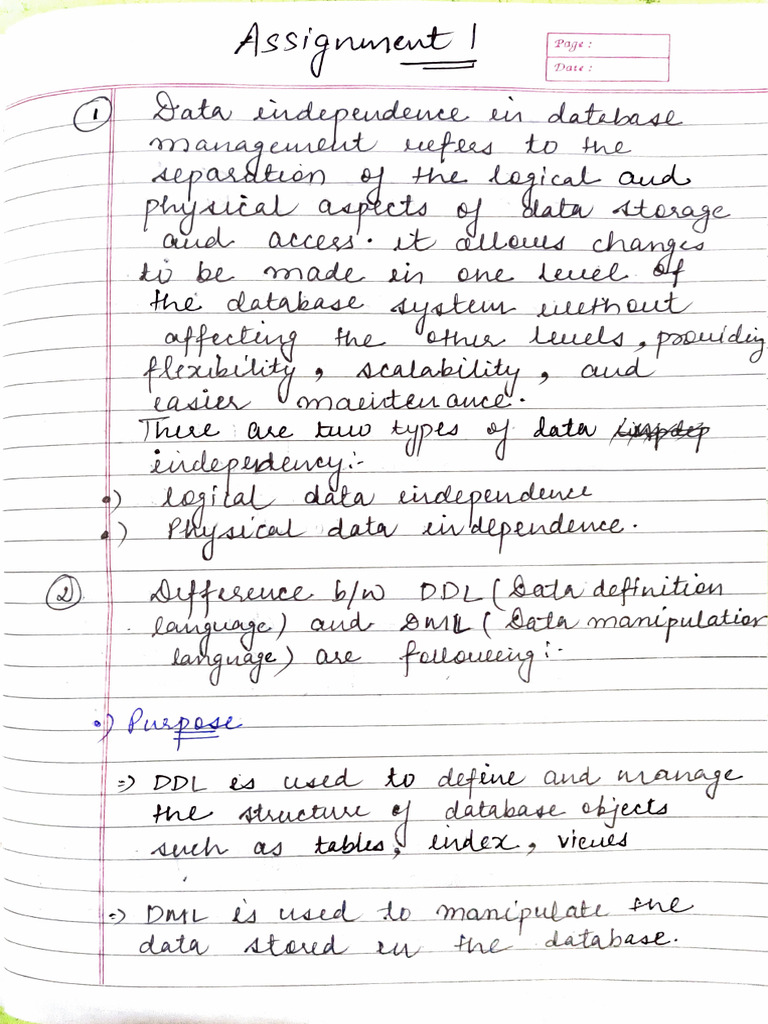 Assignment 1
Page :
Date :
① Data independence in database
management refers to the
separation of the logical and
physical aspects of data storage
and access. it allows changes
to be made in one level of
the database system without
affecting the other levels, providing
flexibility, scalability, and
easier maintenance.
There are two types of data
independency:-
•) logical data independence
•) Physical data independence.
② Difference b/w DDL (Data definition
language) and DML (Data manipulation
language) are following:-
•) Purpose
=> DDL is used to define and manage
the structure of database objects
such as tables, index, views
=> DML is used to manipulate the
data stored in the database.